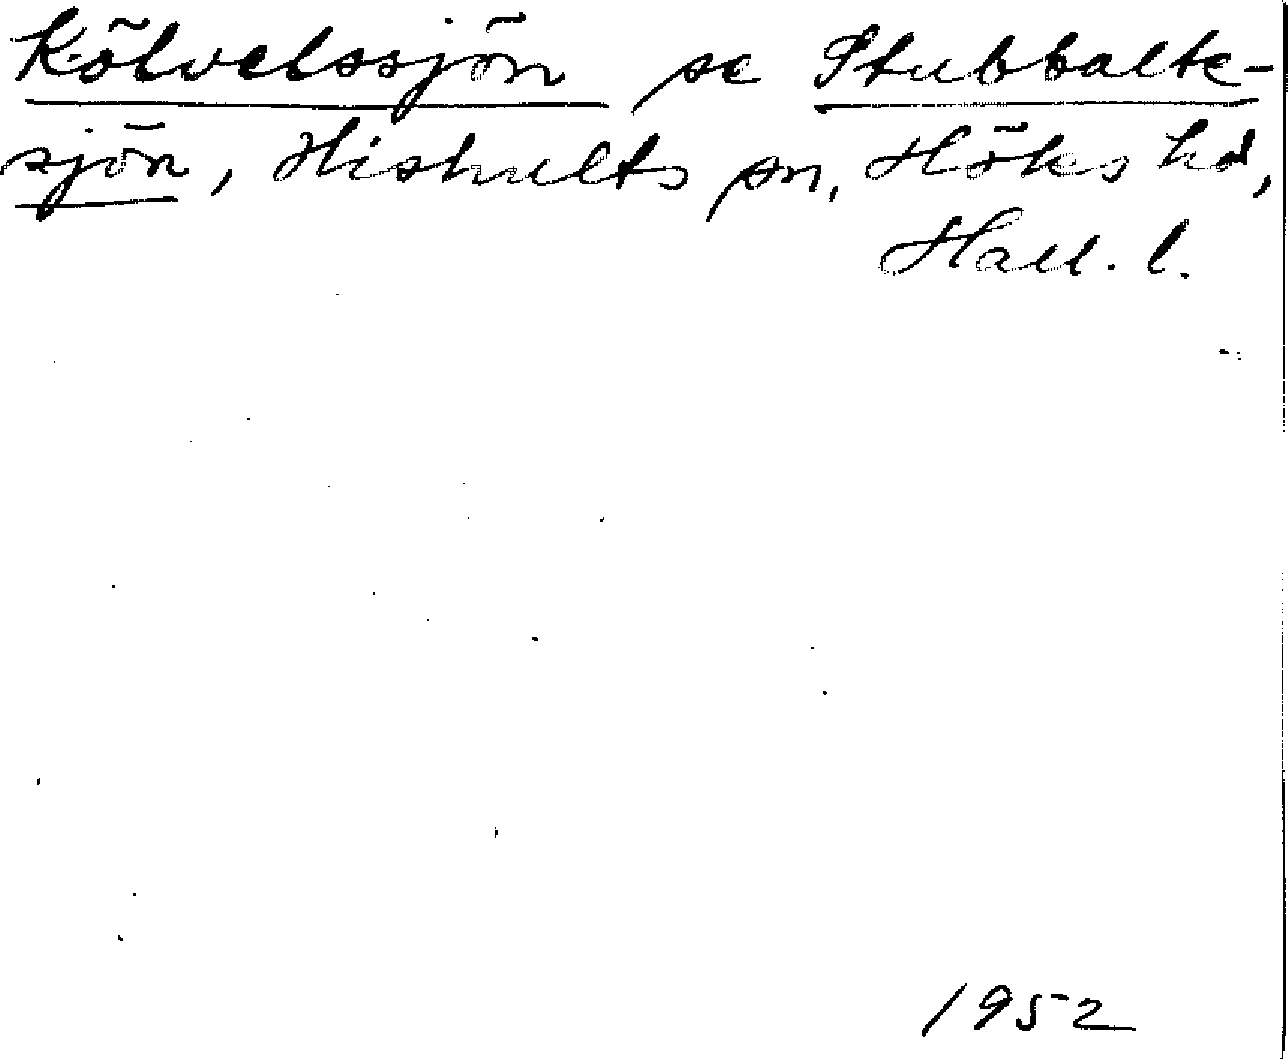 Kölvelssjön se Stubbalte-
sjön, Hishults sn, Höks hd,
Hall. l.
1952